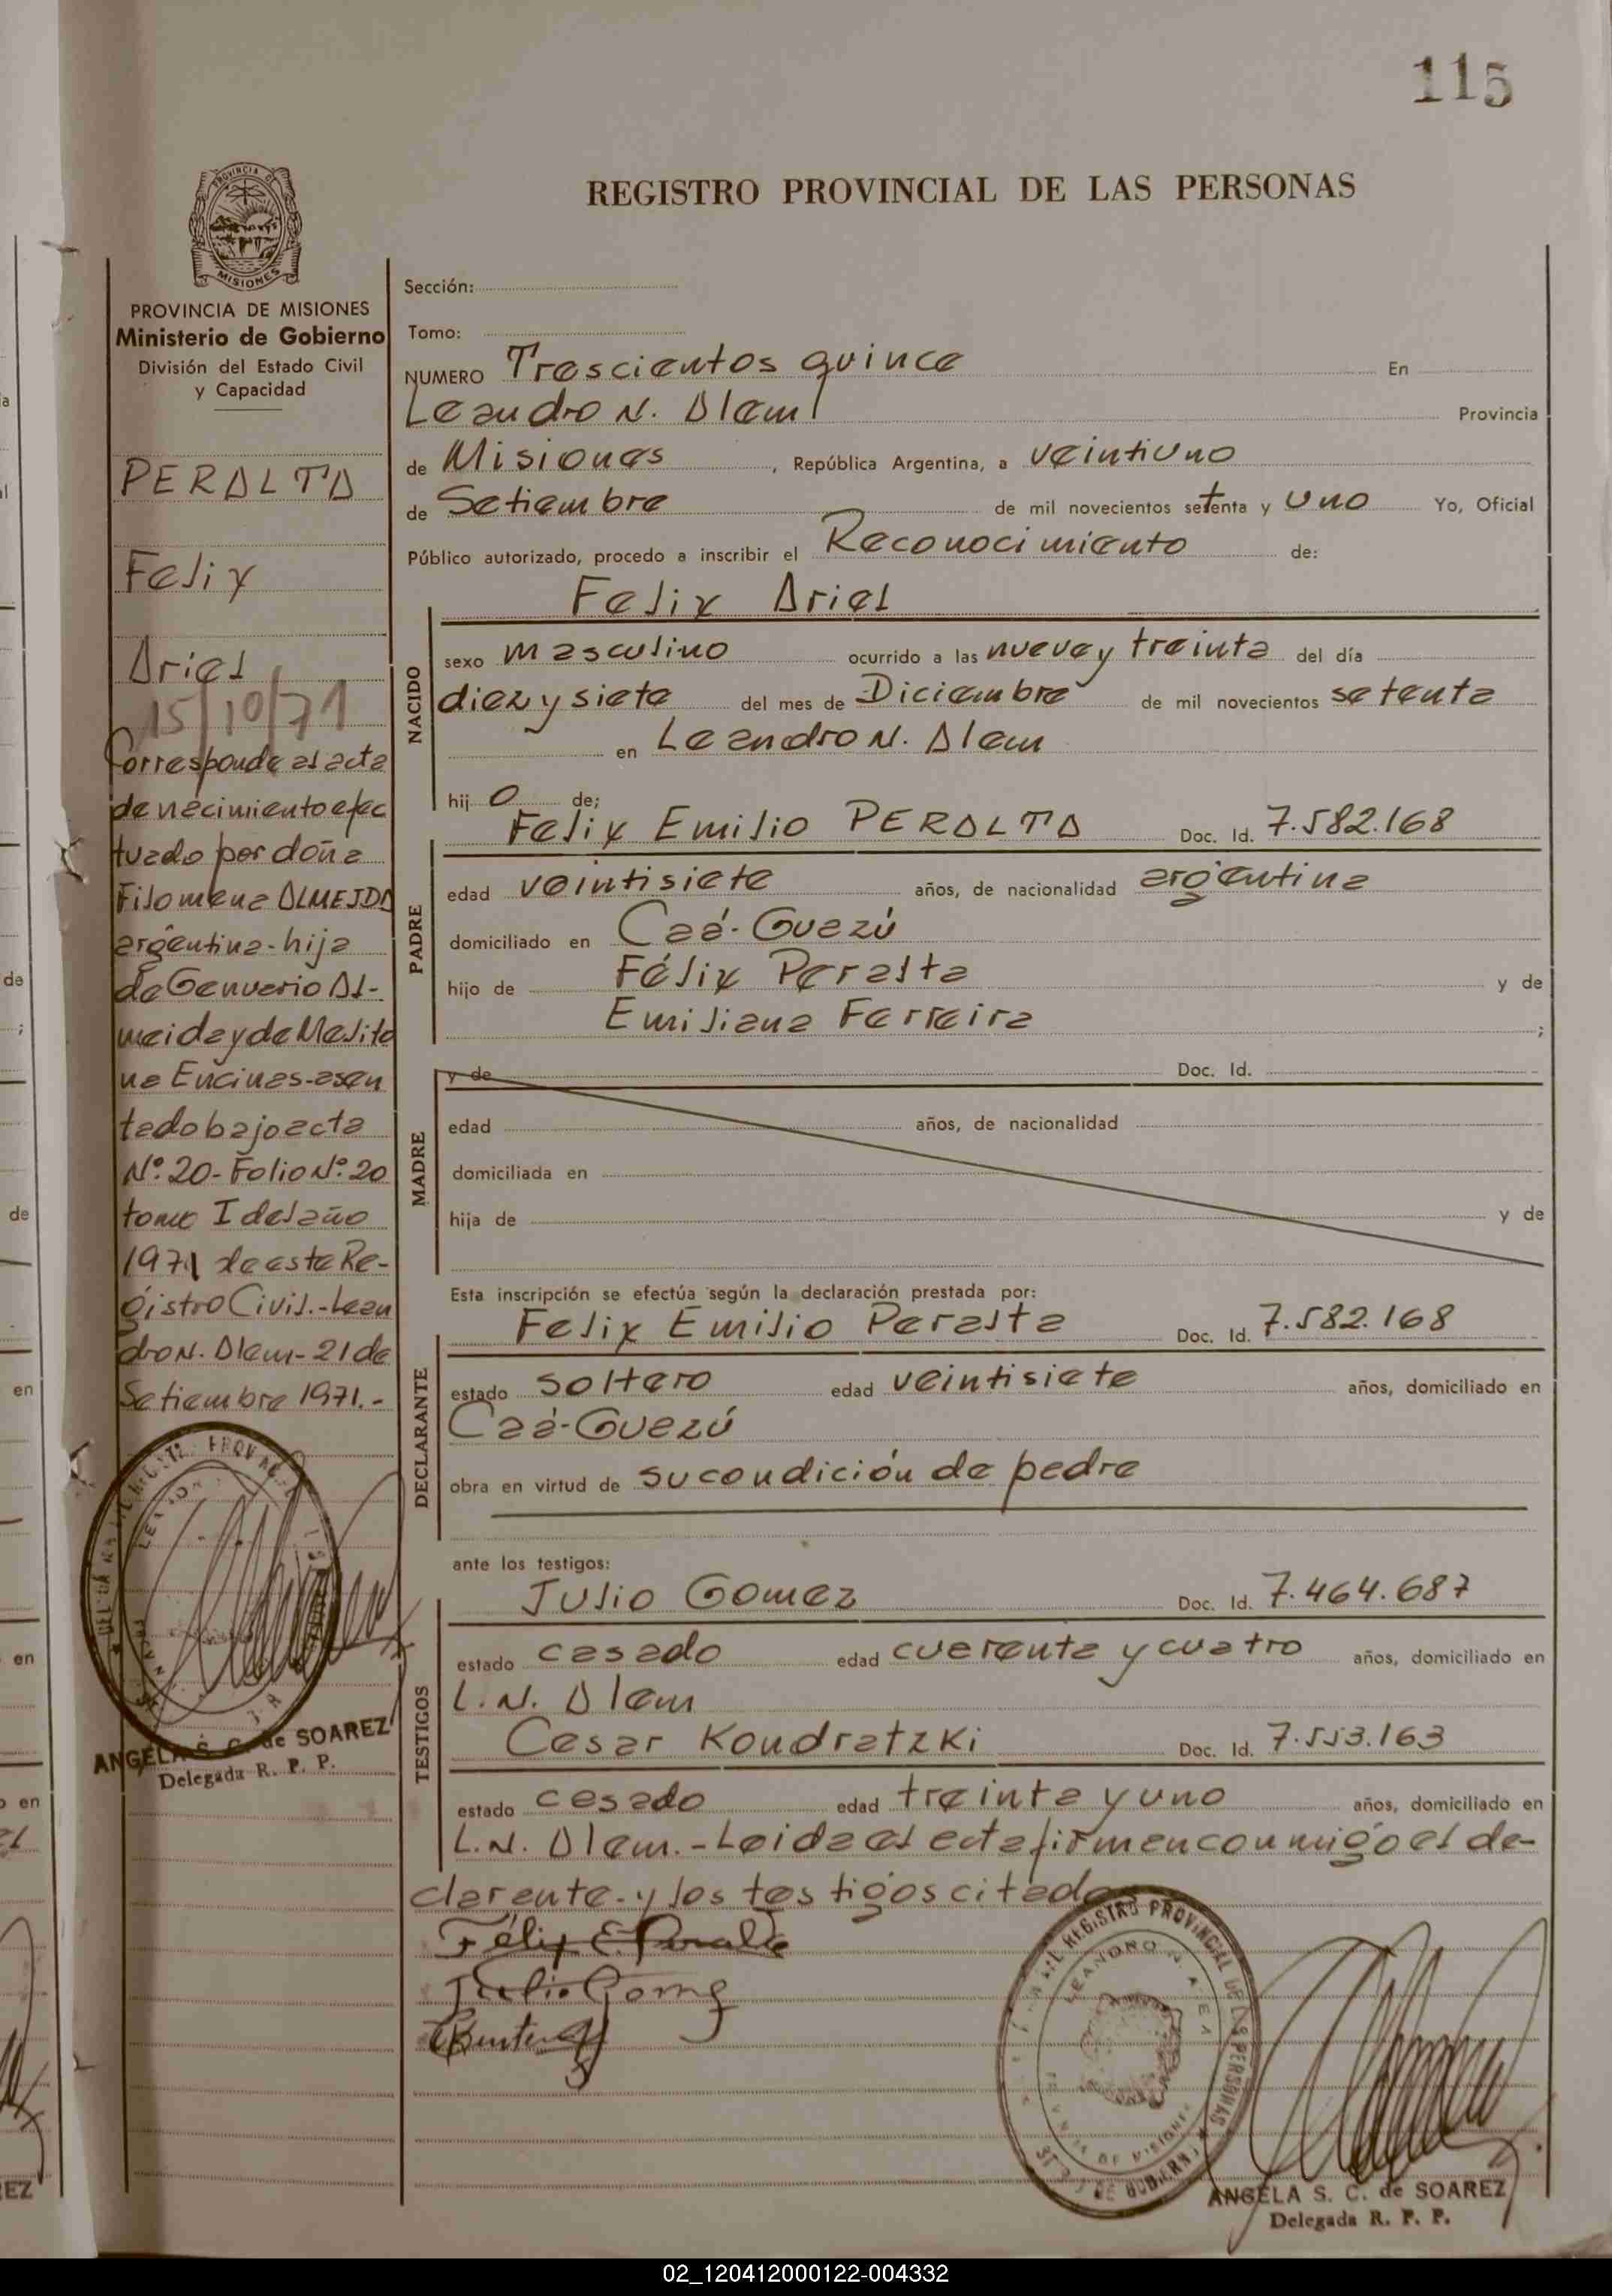 115
REGISTRO PROVINCIAL DE LAS PERSONAS
PROVINCIA DE
MISIONES
PROVINCIA DE MISIONES
Ministerio de Gobierno
División del Estado Civil
y Capacidad
PERALTA
Felix
Ariel
15/10/71
Corresponde al acta
de nacimiento efec
tuado por doña
Filomena ALMEIDA
argentina - hija
de Genuerio Al-
meida y de Melito
na Encinas - asen
tado bajo acta
Nº. 20 - Folio Nº. 20
tomo I del año
1971 de este Re-
gistro Civil. - Lean
dro N. Alem - 21 de
Setiembre 1971. -
ANGELA S. C. de SOAREZ
Delegada R. P. P.
Sección:
Tomo:
NUMERO Trescientos quince En
Leandro N. Alem Provincia
de Misiones, República Argentina, a veintiuno
de Setiembre de mil novecientos setenta y uno Yo, Oficial
Público autorizado, procedo a inscribir el Reconocimiento de:
Felix Ariel
NACIDO
sexo masculino ocurrido a las nueve y treinta del día
diez y siete del mes de Diciembre de mil novecientos setenta
en Leandro N. Alem
hij o de;
Felix Emilio PERALTA Doc. Id. 7.582.168
PADRE
edad veintisiete años, de nacionalidad argentina
domiciliado en Caá-Guazú
hijo de Félix Peralta y de
Emiliana Ferreira ;
y de Doc. Id.
MADRE
edad años, de nacionalidad
domiciliada en
hija de y de
Esta inscripción se efectúa según la declaración prestada por:
Felix Emilio Peralta Doc. Id. 7.582.168
DECLARANTE
estado soltero edad veintisiete años, domiciliado en
Caá-Guazú
obra en virtud de su condición de padre
ante los testigos:
Julio Gomez Doc. Id. 7.464.687
TESTIGOS
estado casado edad cuarenta y cuatro años, domiciliado en
L. N. Alem
Cesar Kondratzki Doc. Id. 7.553.163
estado casado edad treinta y uno años, domiciliado en
L. N. Alem. - Leida el acta firman conmigo el de-
clarante - y los testigos citados
Félix E. Peralta
Julio Gomez
REGISTRO PROVINCIAL DE LAS PERSONAS
LEANDRO N. ALEM
ANGELA S. C. de SOAREZ
Delegada R. P. P.
02_120412000122-004332